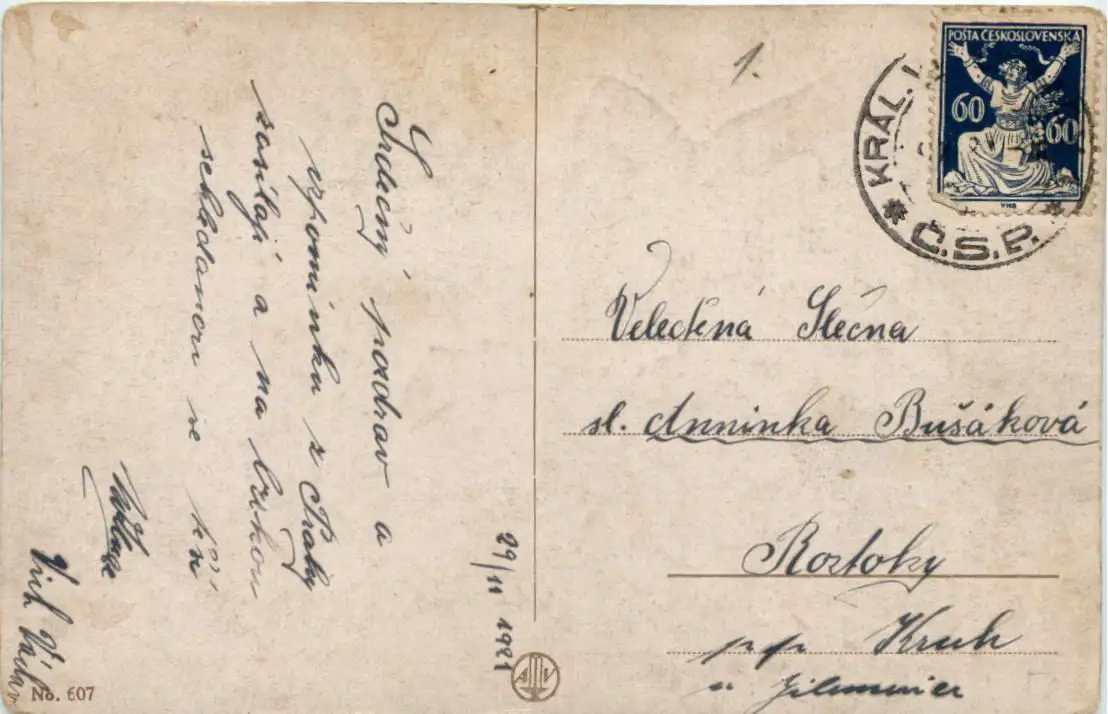 Srdečný pozdrav a
vzpomínku z Prahy
zasílají a na brzkou
shledanou se těší
29/11 1921
No. 607
1.
POSTA ČESKOSLOVENSKA
60 60
KRÁL.
Č.S.P.
Veledůstojná Slečna
sl. Anninka Bušáková
Roztoky
p. p. Kruh
u Jilemnice